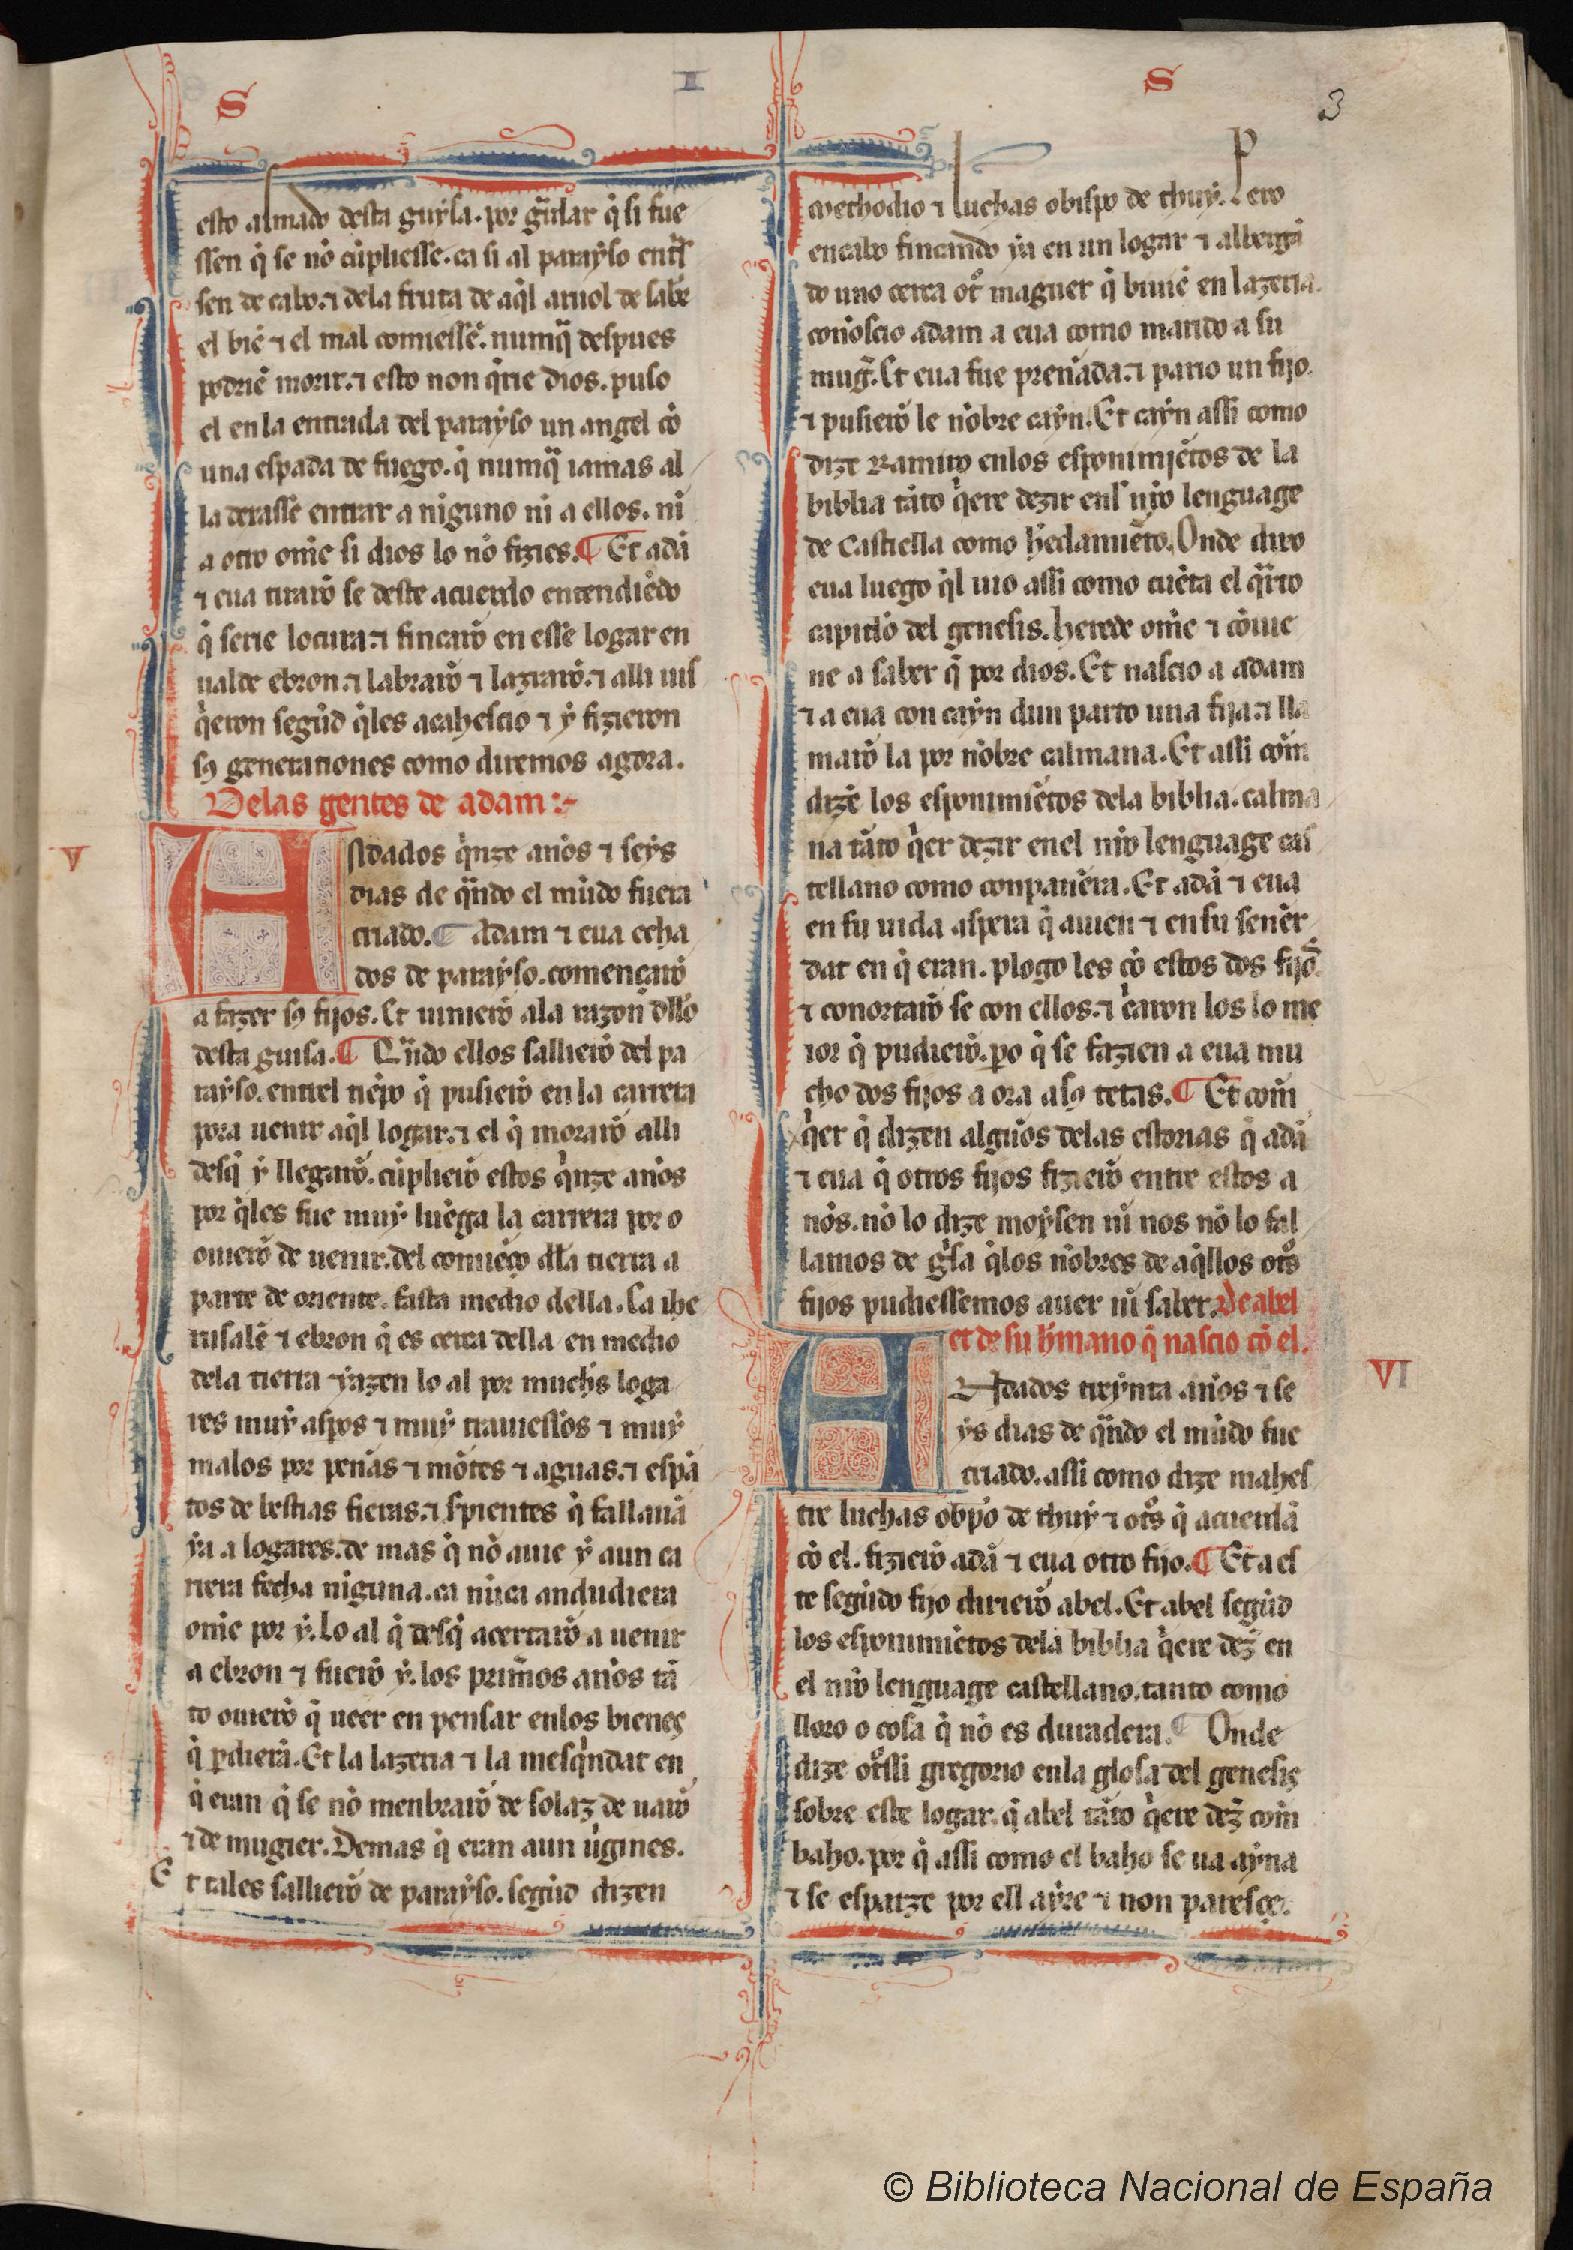 S
I
S
3
esto almado desta guysa. por g̃ũdar q̃ si fue
ssen q̃ se nõ cũpliesse. ca si al parayso entrͣ
sen de cabo. ⁊ dela fruta de aq̃l aruol de sabe
el biẽ ⁊ el mal comiessẽ. numq̃ despues
podriẽ morir. ⁊ esto non q̃rie dios. puso
el en la entrada del parayso un angel cõ
una espada de fuego. q̃ numq̃ iamas al
la dexassẽ entrar a niguno ni a ellos. ni
a otro om̃e si dios lo nõ fizies. ¶ Et adã
⁊ eua tirarõ se deste acuerdo entendiẽdo
q̃ serie locura. ⁊ fincarõ en esse logar en
ualde ebron. ⁊ labrarõ ⁊ lazrarõ. ⁊ alli uis
q̃eron segũd q̃les acahescio ⁊ ẏ fizieron
sꝯ generationes como diremos agora.
Delas gentes de adam:~
V
A
ndados q̃nze anõs ⁊ seẏs
dias de q̃ndo el mũdo fuera
criado. ¶ Adam ⁊ eua echa
dos de paraẏso. començarõ
a fazer sꝯ fijos. Et uinierõ ala razon dello
desta guisa. ¶ Q̃ndo ellos sallierõ del pa
rayso. entrel tiẽpo q̃ pusierõ en la carrera
pora uenir aq̃l logar. ⁊ el q̃ morarõ alli
desq̃ ẏ llegarõ. cũplierõ estos q̃nze anõs
por q̃les fue muẏ luẽga la carrera por o
ouierõ de uenir. del comiẽço dlla tierra a
parte de oriente. fasta medio della. Ca ihe
rusalẽ ⁊ ebron q̃ es cerca della en medio
dela tierra ẏazen lo al por much̃s loga
res muẏ asp̃os ⁊ muẏ trauiessos ⁊ muẏ
malos por penãs ⁊ mõtes ⁊ aguas. ⁊ espã
tos de bestias fieras. ⁊ s̃pientes q̃ fallauã
ẏa a logares. de mas q̃ nõ auie ẏ aun ca
rrera fecha niguna. ca nũca andudiera
om̃e por ẏ. Lo al q̃ desq̃ acertarõ a uenir
a ebron ⁊ fuerõ ẏ. los prim̃os anõs tã
to ouierõ q̃ ueer en pensar enlos bienes
q̃ p̃dierã. Et la lazeria ⁊ la mesq̃ndat en
q̃ eran q̃ se nõ menbrarõ de solaz de uarõ
⁊ de mugier. Demas q̃ eran aun ũgines.
Et tales sallierõ de parayso. segũd dizen
methodio ⁊ luchas obispo de thuẏ. Pero
encabo fincando ẏa en un logar ⁊ albergã
do uno cerca otͦ maguer q̃ biuiẽ en lazeria.
conoscio adam a eua como marido a su
mug̃. Et eua fue prenãda. ⁊ pario un fijo.
⁊ pusierõ le nõbre caẏn. Et caẏn assi como
dize Ramiro enlos esponimiẽtos de la
biblia tãto q̃ere dezir enl nr̃o lenguage
de Castiella como h̃edamiẽto. Onde dixo
eua luego q̃l uio assi como cuẽta el q̃rto
capitlõ del genesis. herede om̃e ⁊ cõuie
ne a saber q̃ por dios. Et nascio a adam
⁊ a eua con caẏn dun parto una fija. ⁊ lla
marõ la por nõbre calmana. Et assi com̃
dizẽ los esponimiẽtos dela biblia. calma
na tãto q̃er dezir enel nr̃o lenguage cas
tellano como conpanẽra. Et adã ⁊ eua
en su uida aspera q̃ auien ⁊ en su senẽr
dat en q̃ eran. plogo les cõ estos dos fijos̃
⁊ conortarõ se con ellos. ⁊ c̃aron los lo me
ior q̃ pudierõ. p̃o q̃ se fazien a eua mu
cho dos fijos a ora a sꝯ tetas. ¶ Et com̃
q̃er q̃ dizen algunõs delas estorias q̃ adã
⁊ eua q̃ otros fijos fizierõ entre estos a
nõs. nõ lo dize moẏsen nĩ nos nõ lo fal
lamos de g̃sa q̃los nõbres de aq̃llos otͦs
fijos pudiessemos auer nĩ saber. De abel
et de su h̃mano q̃ nascio cõ el.
VI
A
Ndados treẏnta anõs ⁊ se
ẏs dias de q̃ndo el mũdo fue
criado. assi como dize mahes
tre luchas obpõ de thuẏ ⁊ otͦs q̃ acuerdã
cõ el. fizierõ adã ⁊ eua otro fijo. ¶ Et a es
te segũdo fijo dixierõ abel. Et abel segũd
los esponimiẽtos dela biblia q̃ere dez̃ en
el nr̃o lenguage castellano. tanto como
lloro o cosa q̃ nõ es duradera. ¶ Onde
dize otͦssi gregorio enla glosa del genesis
sobre este logar. q̃ abel tãto q̃ere dez̃ com̃
baho. por q̃ assi como el baho se ua aẏna
⁊ se esparze por ell aẏre ⁊ non paresçe.
© Biblioteca Nacional de España